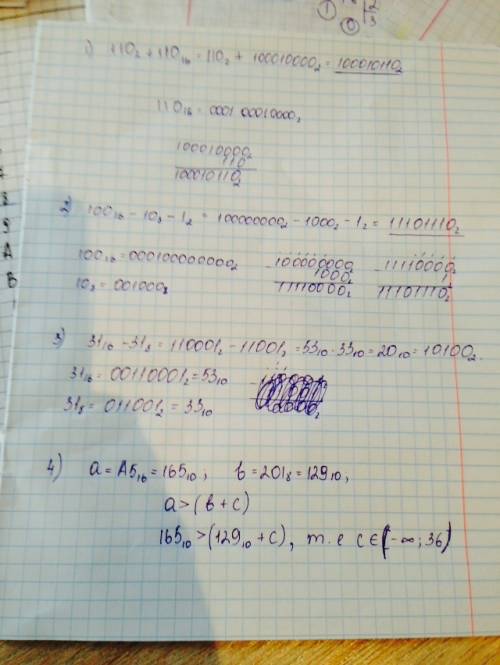 1) 110₂ + 110₁₆ = 110₂ + 100010000₂ = 100010110₂
110₁₆ = 0001 00010000₂
100010000₂
110
100010110₂
2) 100₁₆ - 10₈ - 1₂ = 100000000₂ - 1000₂ - 1₂ = 11101110₂
100₁₆ = 000100000000₂
10₈ = 001000₂
- 100000000₂
1000₂
11110000₂
- 11110000₂
1₂
11101110₂
3) 31₁₆ - 31₈ = 110001₂ - 11001₂ = 53₁₀ - 33₁₀ = 20₁₀ = 10100₂.
31₁₆ = 00110001₂ = 53₁₀
31₈ = 011001₂ = 33₁₀
4) a = A5₁₆ = 165₁₀, b = 201₈ = 129₁₀,
a > (b + c)
165₁₀ > (129₁₀ + c), т.е c ∈ (-∞; 36)